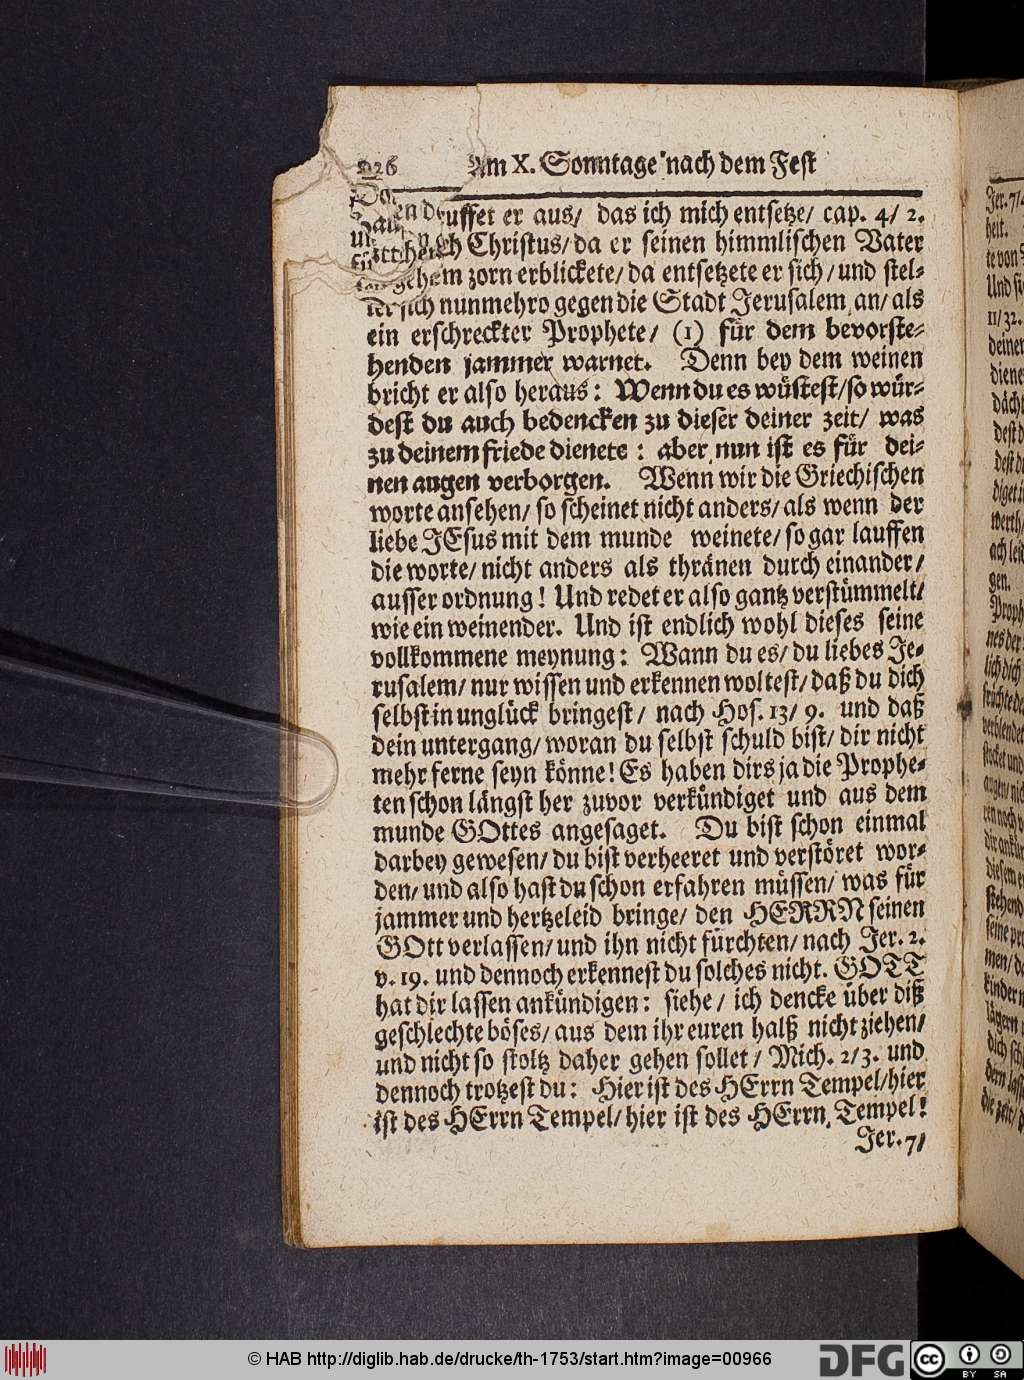 926 Am X. Sonntage nach dem Fest
ruffet er aus/ das ich mich entsetze/ cap. 4/ 2.
Christus/ da er seinen himmlischen Vater
zorn erblickete/ da entsetzete er sich/ und stel-
sich nunmehro gegen die Stadt Jerusalem an/ als
ein erschreckter Prophete/ (1) für dem bevorste-
henden jammer warnet. Denn bey dem weinen
bricht er also heraus: Wenn du es wüstest/ so wür-
dest du auch bedencken zu dieser deiner zeit/ was
zu deinem friede dienete: aber nun ist es für dei-
nen augen verborgen. Wenn wir die Griechischen
worte ansehen/ so scheinet nicht anders/ als wenn der
liebe JEsus mit dem munde weinete/ so gar lauffen
die worte/ nicht anders als thränen durch einander/
ausser ordnung! Und redet er also gantz verstümmelt/
wie ein weinender. Und ist endlich wohl dieses seine
vollkommene meynung: Wann du es/ du liebes Je-
rusalem/ nur wissen und erkennen woltest/ daß du dich
selbst in unglück bringest/ nach Hos. 13/ 9. und daß
dein untergang/ woran du selbst schuld bist/ dir nicht
mehr ferne seyn könne! Es haben dirs ja die Prophe-
ten schon längst her zuvor verkündiget und aus dem
munde GOttes angesaget. Du bist schon einmal
darbey gewesen/ du bist verheeret und verstöret wor-
den/ und also hast du schon erfahren müssen/ was für
jammer und hertzeleid bringe/ den HERRN seinen
GOtt verlassen/ und ihn nicht fürchten/ nach Jer. 2.
v. 19. und dennoch erkennest du solches nicht. GOTT
hat dir lassen ankündigen: siehe/ ich dencke über diß
geschlechte böses/ aus dem ihr euren halß nicht ziehen/
und nicht so stoltz daher gehen sollet/ Mich. 2/ 3. und
dennoch trotzest du: Hier ist des HErrn Tempel/ hier
ist des HErrn Tempel/ hier ist des HErrn Tempel!
Jer. 7/
© HAB http://diglib.hab.de/drucke/th-1753/start.htm?image=00966
DFG
cc BY SA